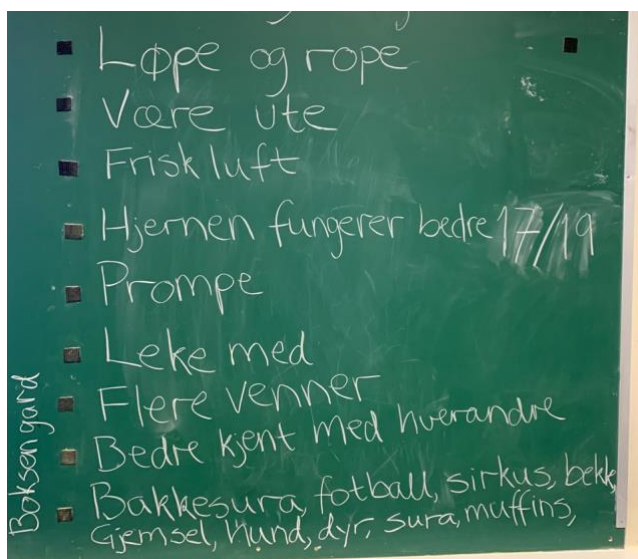 Løpe og rope
Være ute
Frisk luft
Hjernen fungerer bedre 17/19
Prompe
Leke med
Flere venner
Bedre kjent med hverandre
Bakkesura, fotball, sirkus, bekk,
Gjemsel, hund, dyr, sura, muffins,
Boksengard